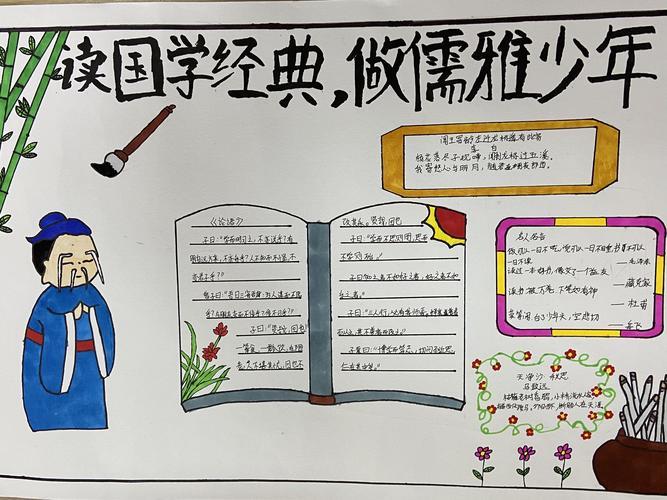 读国学经典,做儒雅少年
闻王昌龄左迁龙标遥有此寄
李白
杨花落尽子规啼,闻道龙标过五溪。
我寄愁心与明月,随君直到夜郎西。
《论语》
子曰:"学而时习之,不亦说乎?有
朋自远方来,不亦乐乎?人不知而不愠,不
亦君子乎?"
曾子曰:"吾日三省吾身:为人谋而不忠
乎?与朋友交而不信乎?传不习乎?"
子曰:"贤哉,回也
一箪食,一瓢饮,在陋
巷,人不堪其忧,回也不
改其乐。贤哉,回也
子曰:"学而不思则罔,思而
不学则殆。"
子曰:"知之者不如好之者,好之者不如
乐之者。"
子曰:"三人行,必有我师焉。择其善者而
从之,其不善者而改之。"
子夏曰:"博学而笃志,切问而近思,
仁在其中矣。"
名人名言
饭可以一日不吃,觉可以一日不睡,书不可以
一日不读
——毛泽东
读过一本好书,像交了一个益友
——臧克家
读书破万卷,下笔如有神
——杜甫
莫等闲,白了少年头,空悲切
——岳飞
天净沙·秋思
马致远
枯藤老树昏鸦,小桥流水人家,